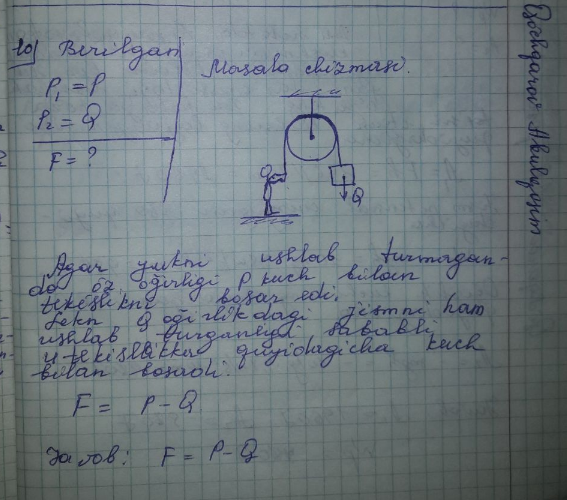 10) Berilgan
P₁ = P
P₂ = Q
F = ?
Masala chizmasi.
Q
Agar yukni ushlab turmagan-
da öz öģirligi P kuch bilan
tekislikni bosar edi.
Lekn Q oģirlikdagi jismni ham
ushlab turganligi sababli
u tekislikka quyidagicha kuch
bilan bosadi.
F = P - Q
Javob: F = P - Q